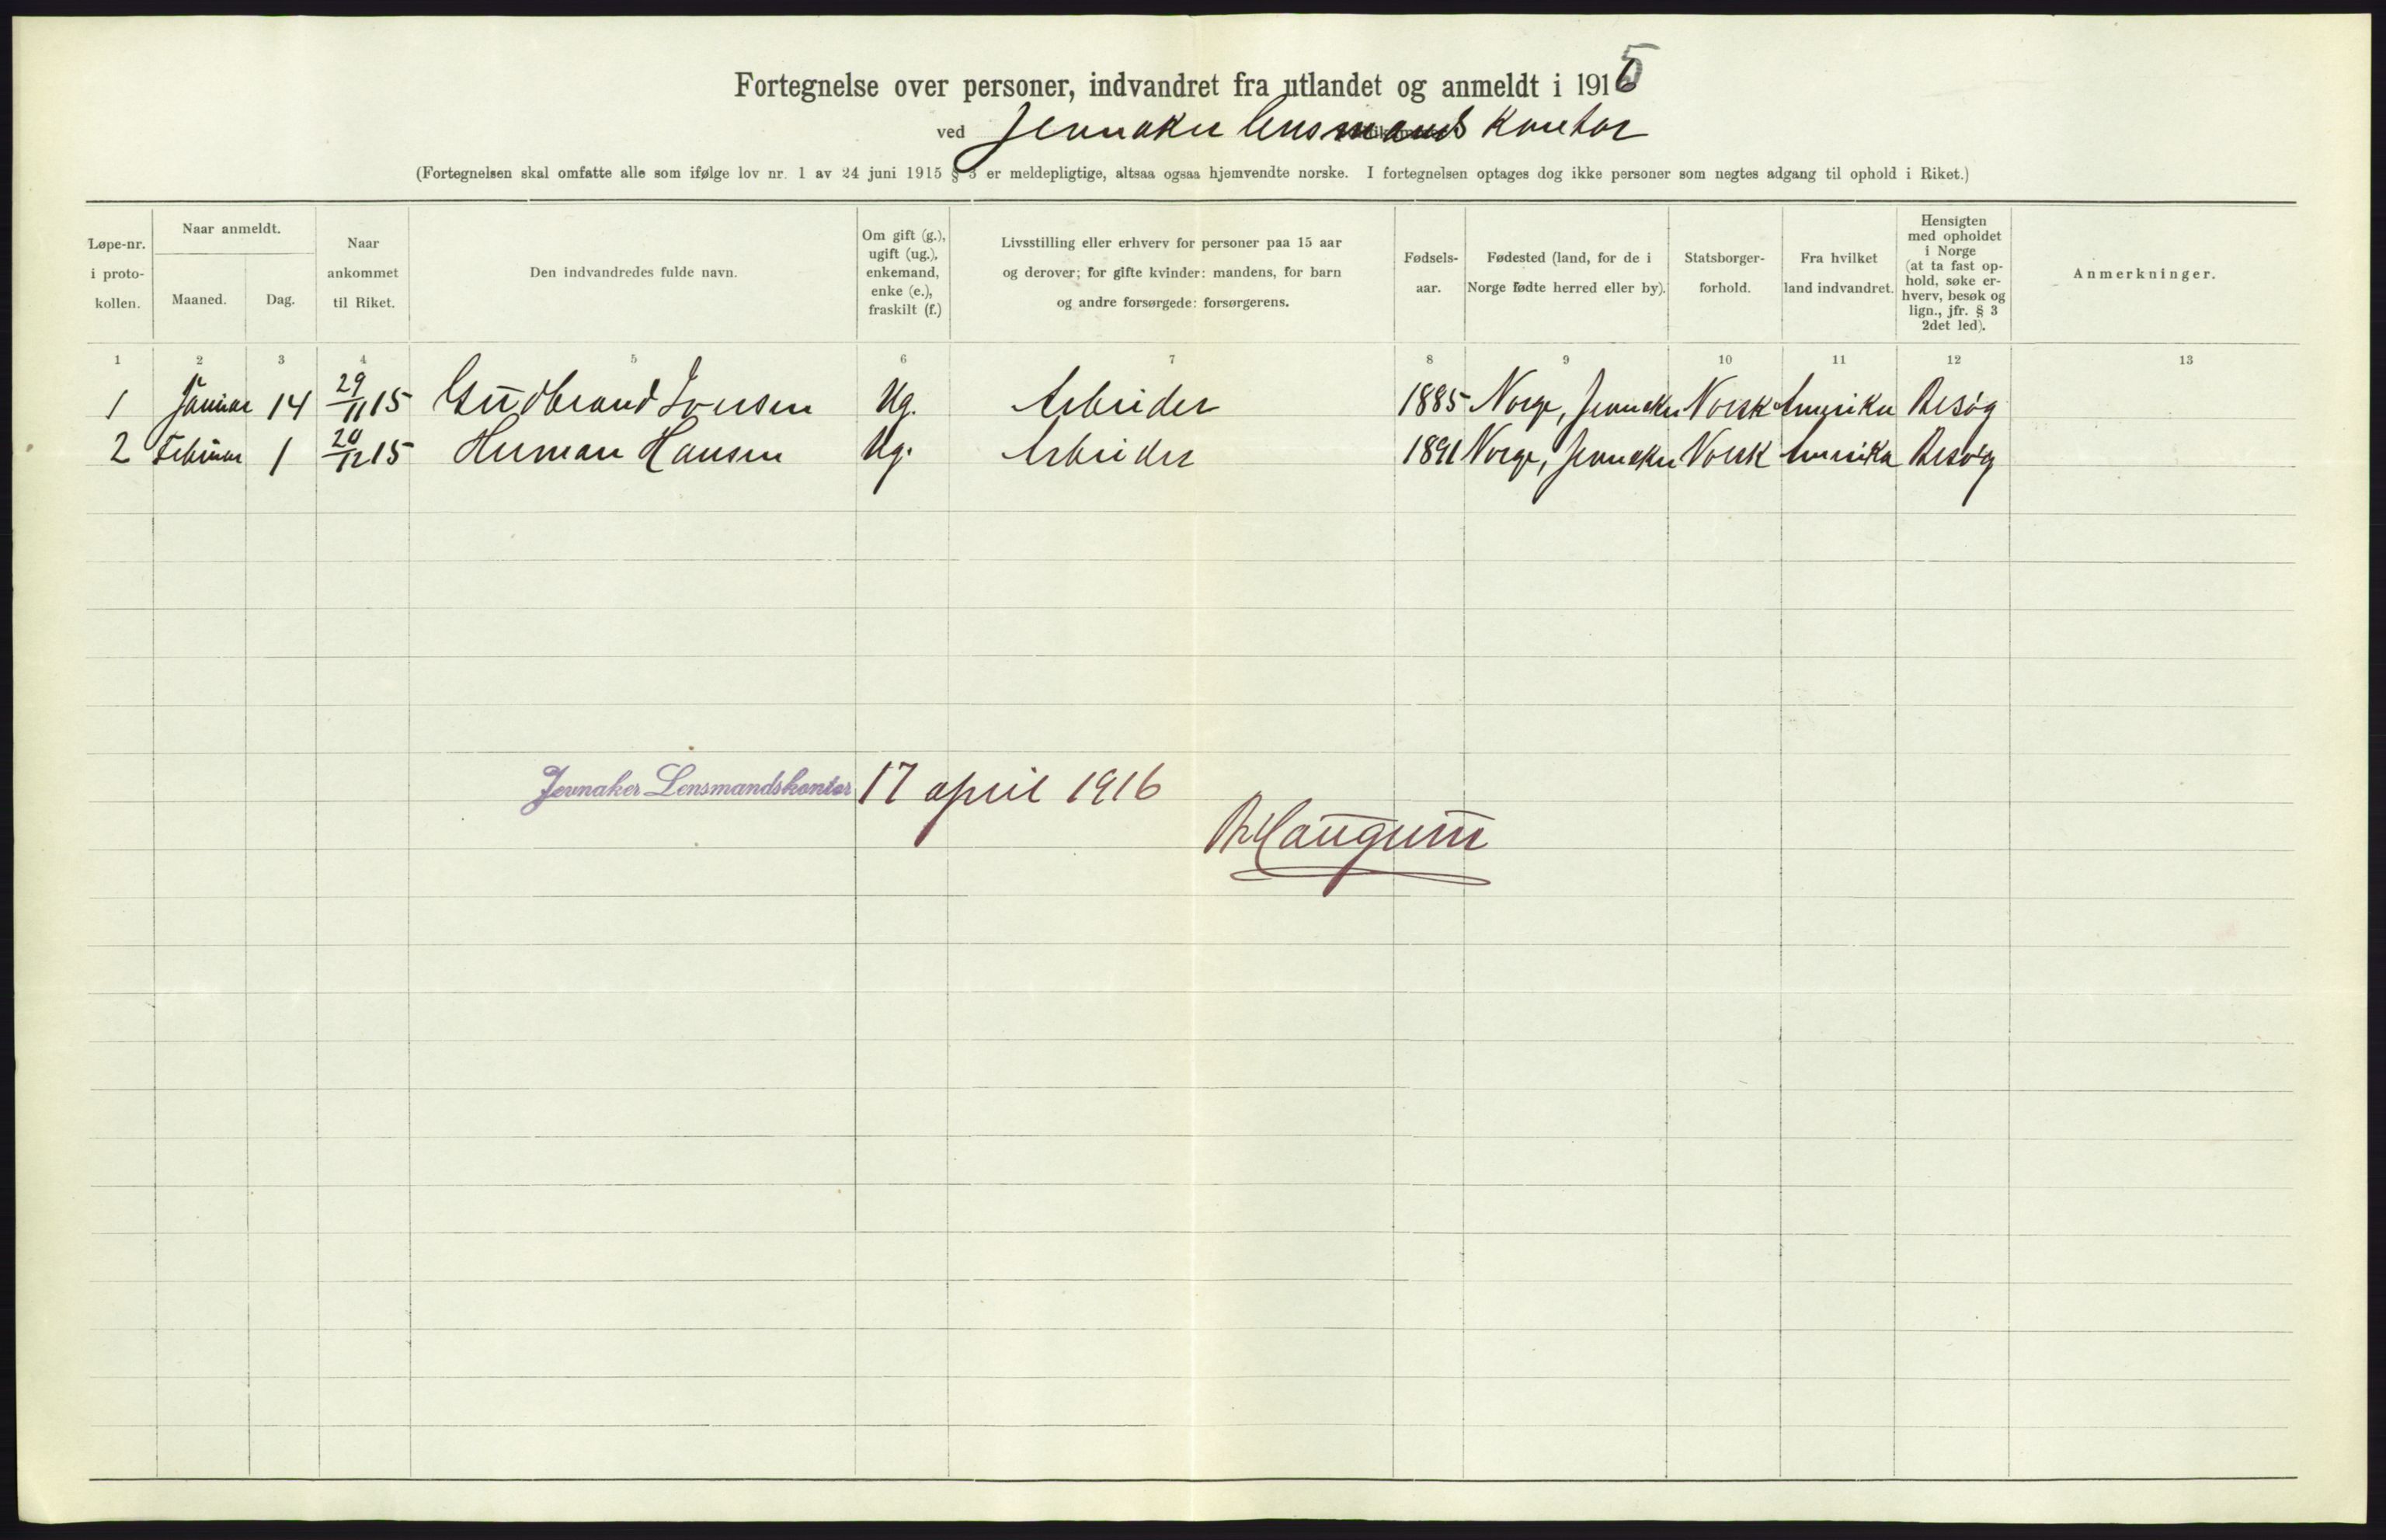 Fortegnelse over personer, indvandret fra utlandet og anmeldt i 1916
ved Jevnaker lensmands kontor
(Fortegnelsen skal omfatte alle som ifølge lov nr. 1 av 24 juni 1915 § 3 er meldepligtige, altsaa ogsaa hjemvendte norske. I fortegnelsen optages dog ikke personer som negtes adgang til ophold i Riket.)
Løpe-nr.
i proto-
kollen.
Naar anmeldt.
Maaned.
Dag.
Naar
ankommet
til Riket.
Den indvandredes fulde navn.
Om gift (g.),
ugift (ug.),
enkemand,
enke (e.),
fraskilt (f.)
Livsstilling eller erhverv for personer paa 15 aar
og derover; for gifte kvinder: mandens, for barn
og andre forsørgede: forsørgerens.
Fødsels-
aar.
Fødested (land, for de i
Norge fødte herred eller by).
Statsborger-
forhold.
Fra hvilket
land indvandret.
Hensigten
med opholdet
i Norge
(at ta fast op-
hold, søke er-
hverv, besøk og
lign., jfr. § 3
2det led).
Anmerkninger.
1 2 3 4 5 6 7 8 9 10 11 12 13
1 Januar 14 29/11 15 Gudbrand Iversen Ug. Arbeider 1885 Norge, Jevnaker Norsk Amerika Besøg
2 Februar 1 20/12 15 Herman Hansen Ug. Arbeider 1891 Norge, Jevnaker Norsk Amerika Besøg
Jevnaker Lensmandskontor 17 april 1916